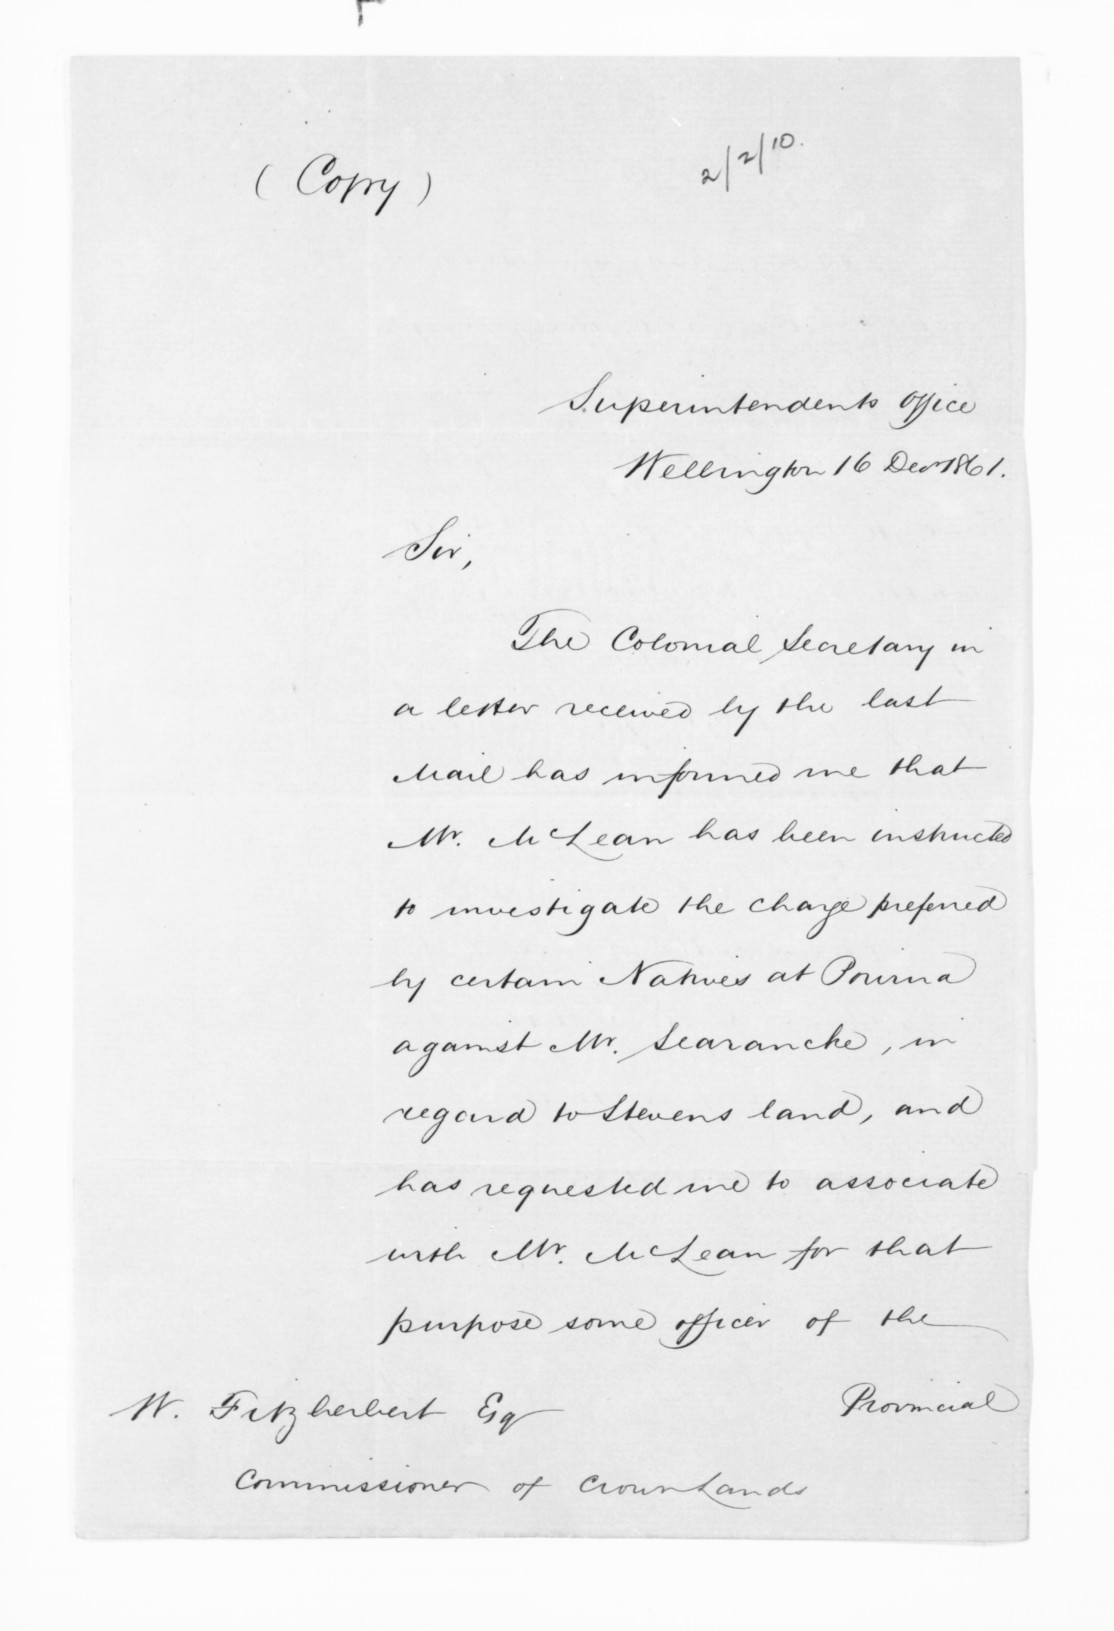 (Copy)
2/2/10.
Superintendents Office
Wellington 16 Decr 1861.
Sir,
The Colonial Secretary in
a letter received by the last
Mail has informed me that
Mr. McLean has been instructed
to investigate the charge preferred
by certain Natives at Porirua
against Mr. Searancke, in
regard to Stevens land, and
has requested me to associate
with Mr. McLean for that
purpose some officer of the
Provincial
W. Fitzherbert Esq
Commissioner of Crown Lands